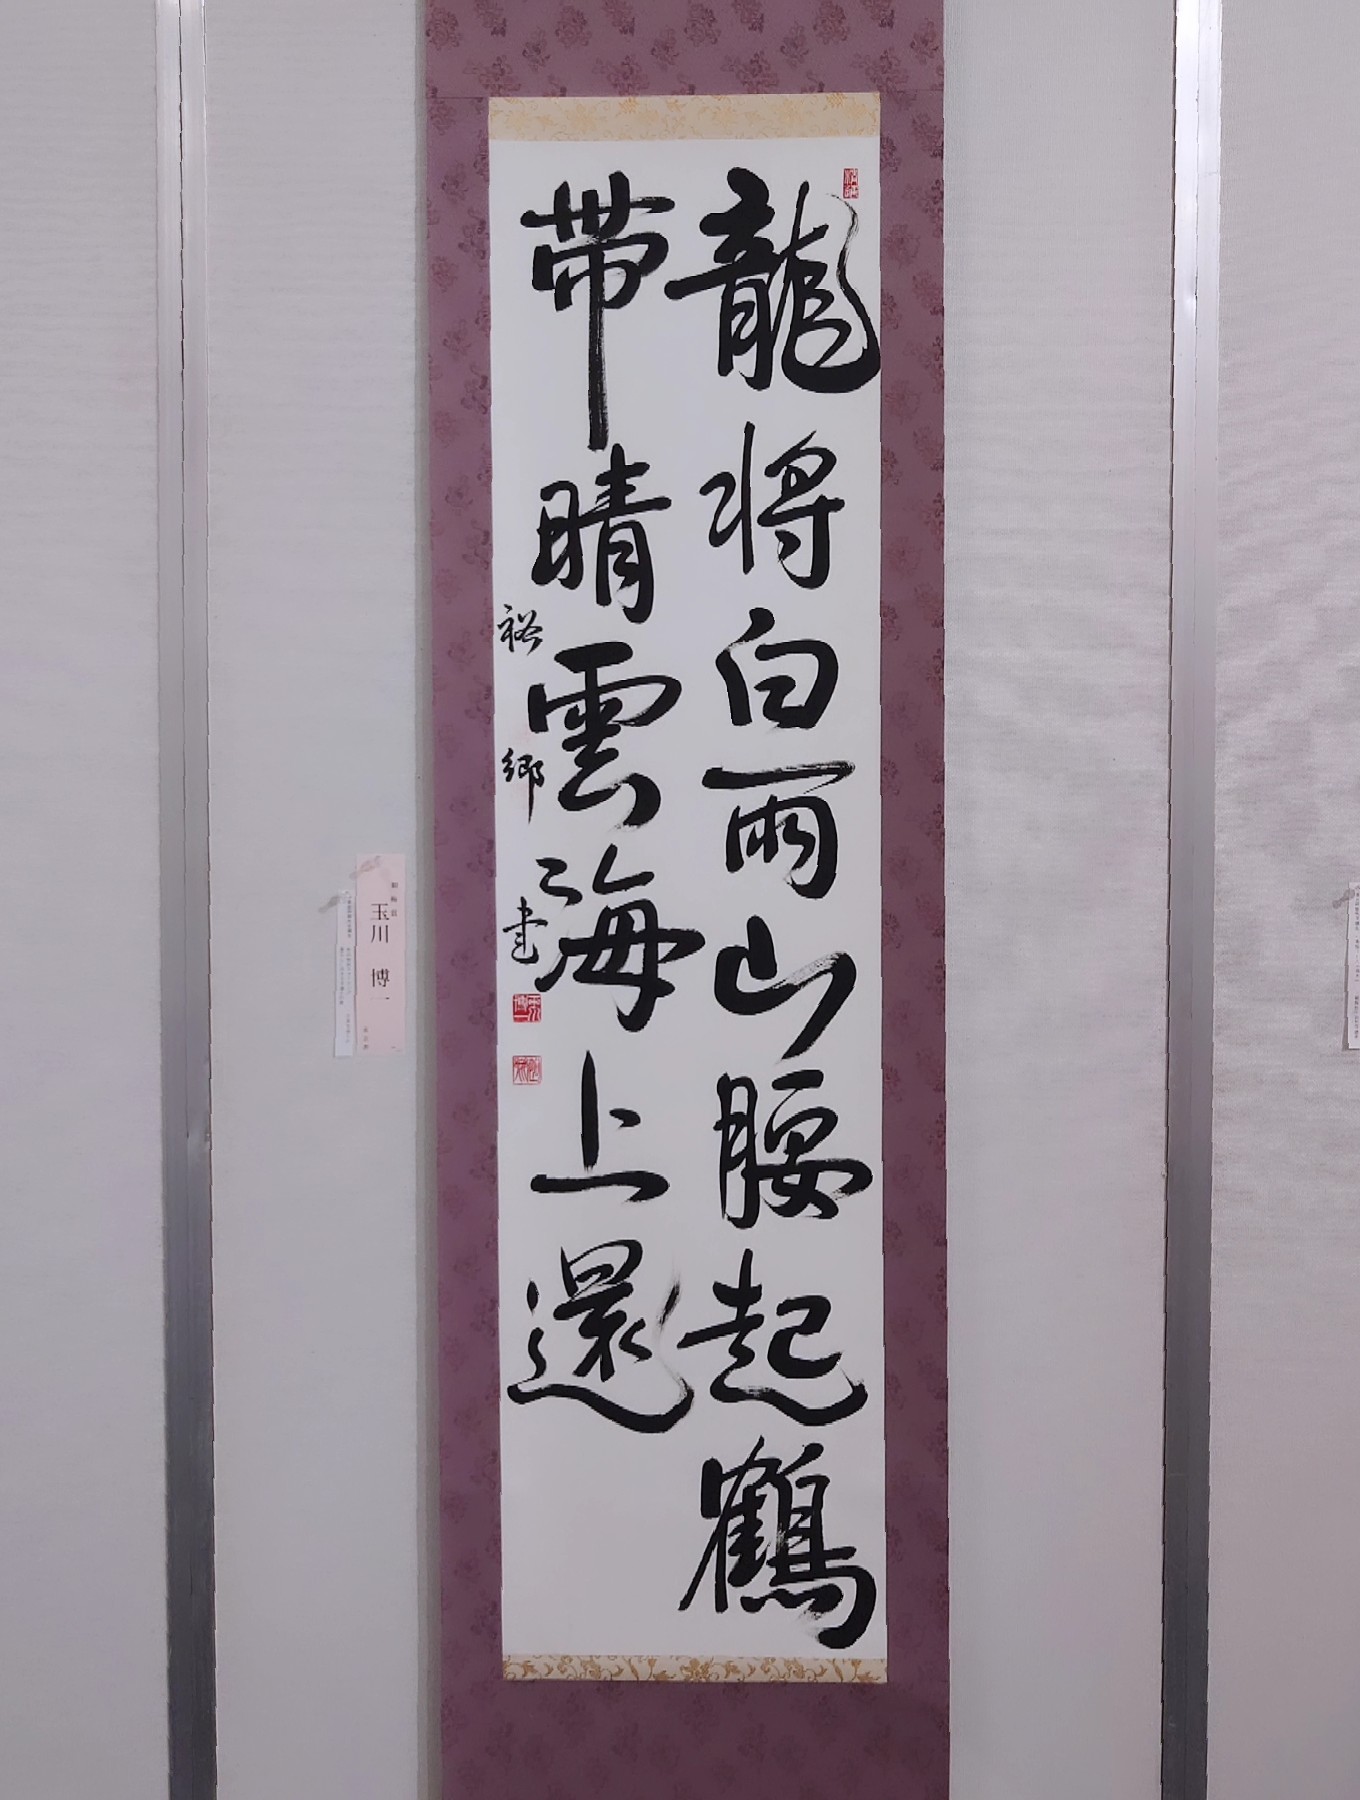 龍将白雨山腰起鶴
帯晴雲海上還
裕郷書
玉川博一